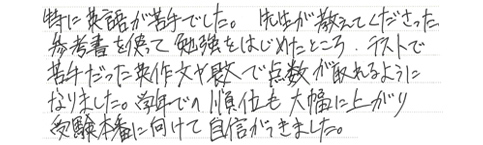 特に英語が苦手でした。先生が教えてくださった
参考書を使って勉強をはじめたところ、テストで
苦手だった英作文や長文で点数が取れるように
なりました。学年での順位も大幅に上がり
受験本番に向けて自信がつきました。